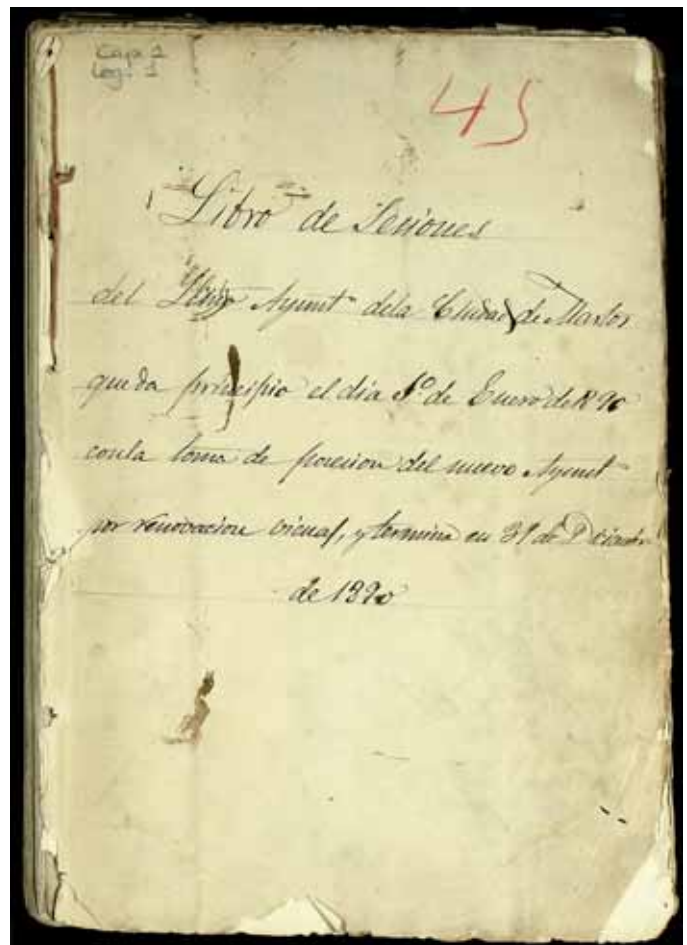 Caja 1
Leg. 1
45
Libro de Sesiones
del Ayunt.º dela Ciudad de Martos
que da principio el dia 1º de Enero de 1890
con la toma de posesion del nuevo Ayunt.º
por renovacion bienal, y termina en 31 de Diciembre
de 1890